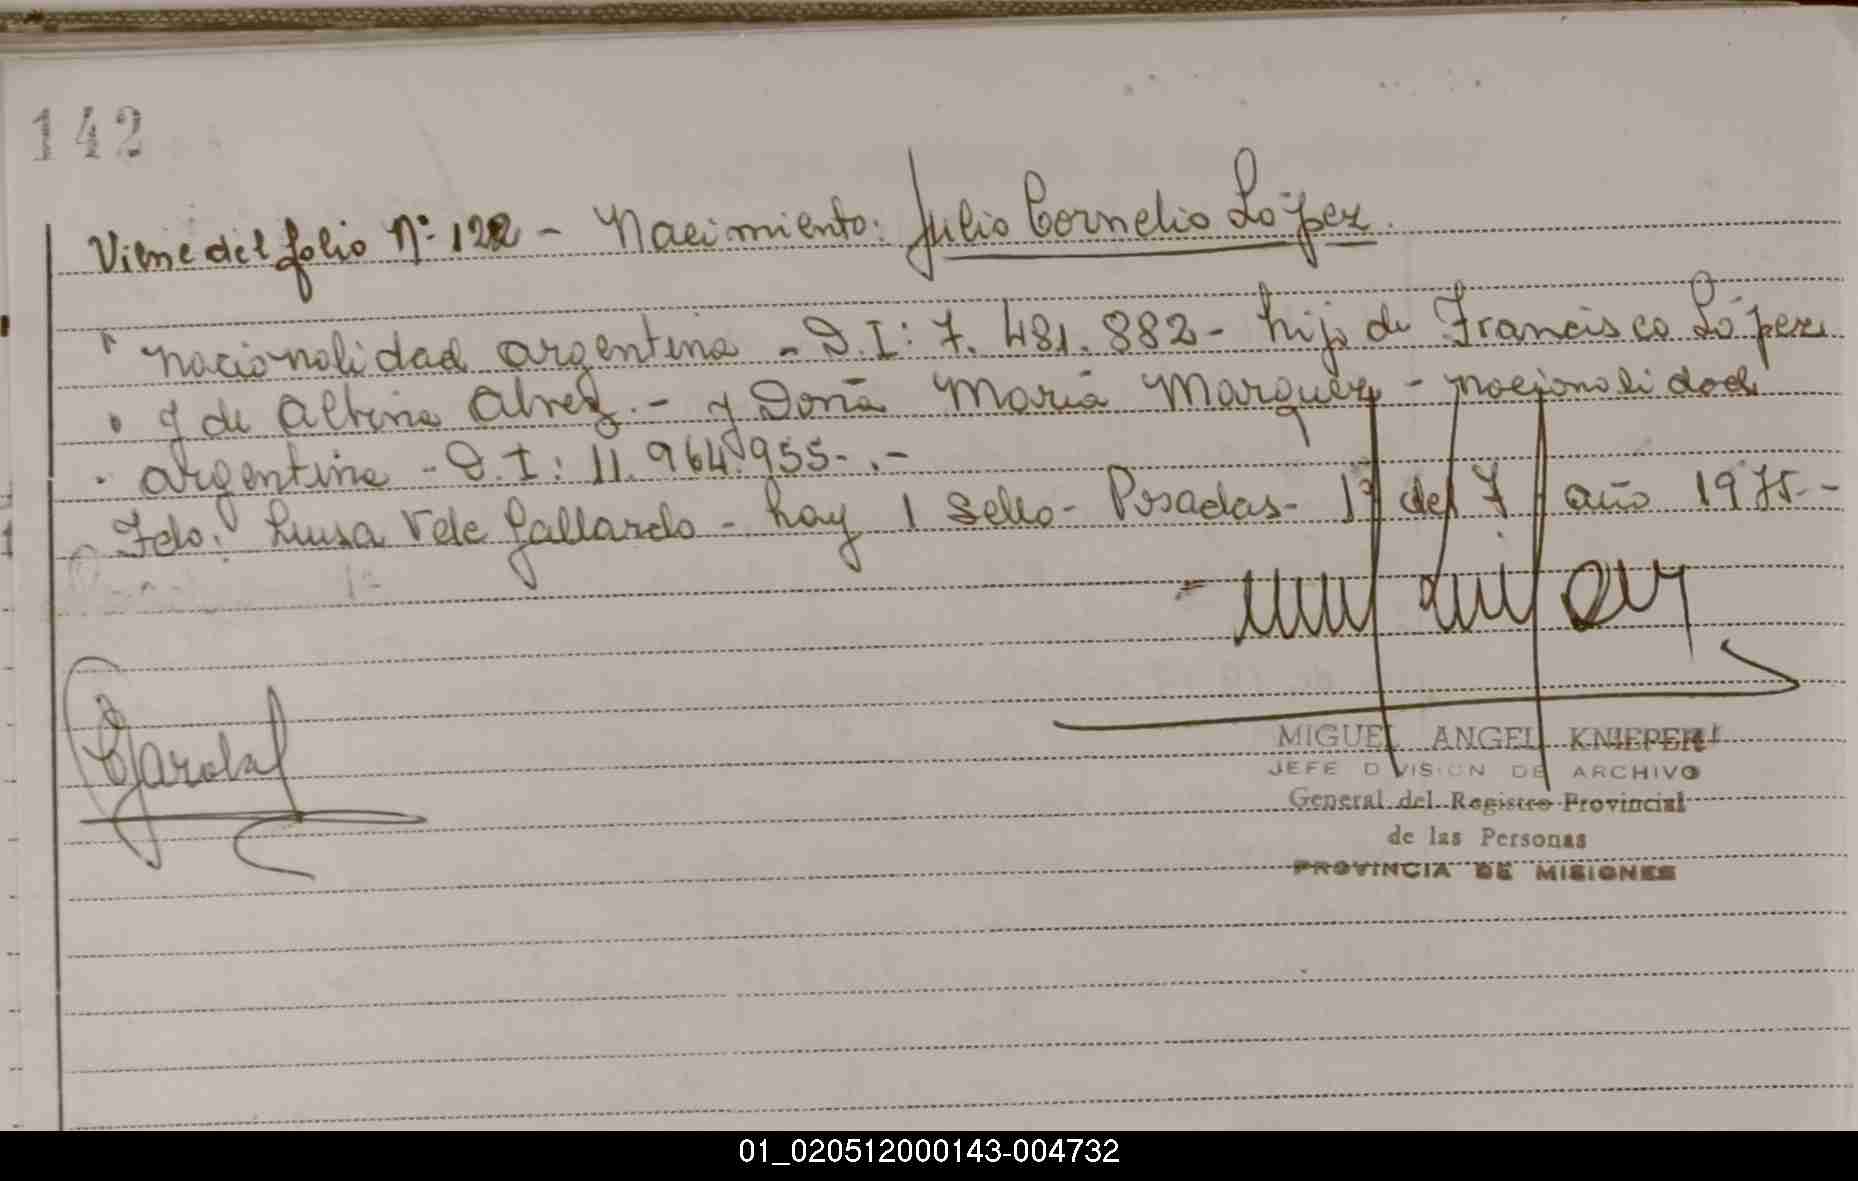 142
Viene del folio Nº 122 - Nacimiento: Julio Cornelio López.
" nacionalidad argentina - D.I: 7.481.882 - hijo de Francisco López
" y de Albina Alvez.- y Doña María Marquez - nacionalidad
" argentina - D.I: 11.964.955-.-
Fdo: Luisa V de Gallardo - hay 1 sello - Posadas - 1º del 7 año 1975.-
MIGUEL ANGEL KNIEPER
JEFE DIVISION DE ARCHIVO
General del Registro Provincial
de las Personas
PROVINCIA DE MISIONES
01_020512000143-004732